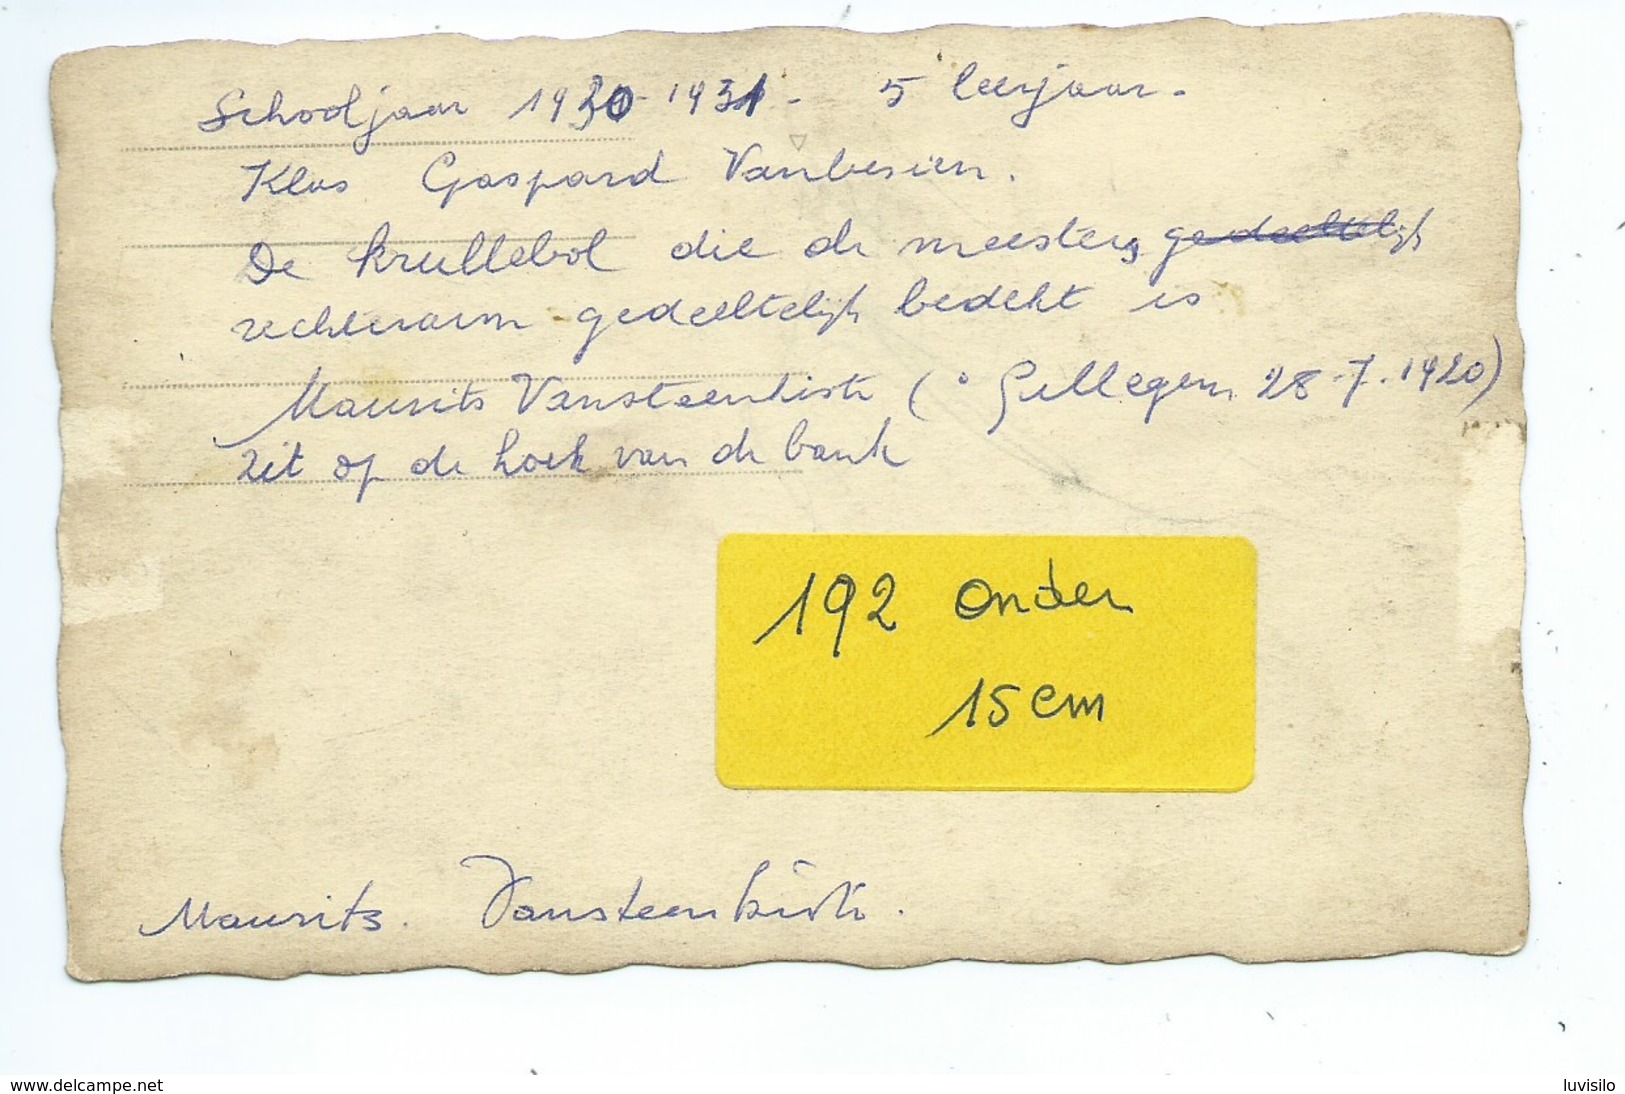 Schooljaar 1930-1931 - 5 leerjaar.
Klas Gaspard Vanbesien.
De krullebol die de meesters gedeeltelijk
rechterarm gedeeltelijk bedekt is
Maurits Vansteenkiste (° Gullegem 28-7-1920)
zit op de hoek van de bank
192 onder
15 cm
Maurits. Vansteenkiste.
www.delcampe.net
luvisilo